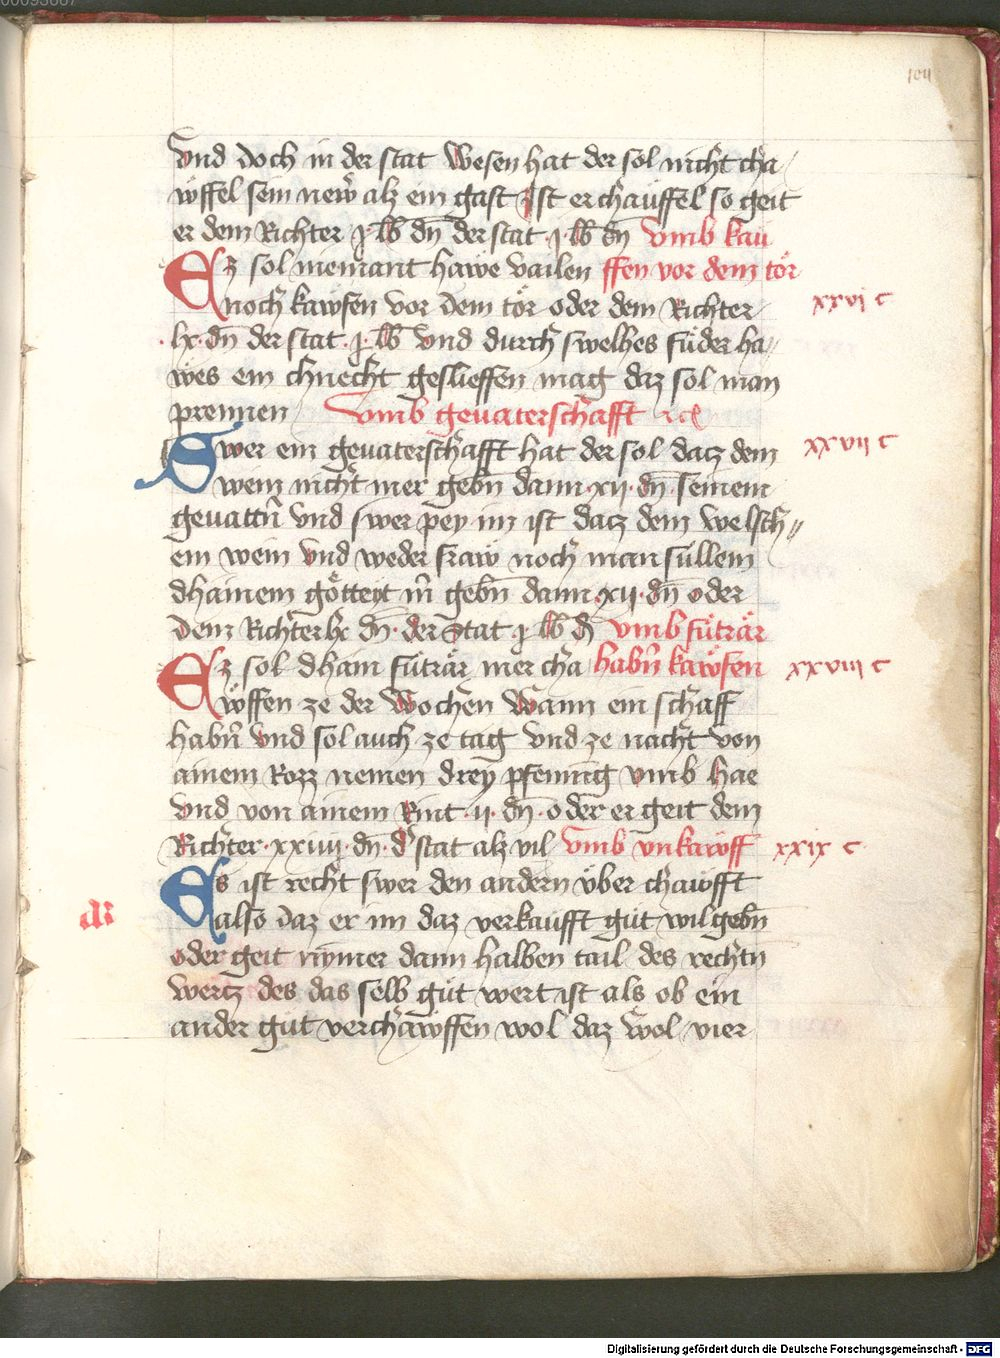 00093667
104
vnd doch in der stat wesen hat der sol nicht cha/
wffel sein new̄ alz ein gast ist er chauffel so geit
er dem Richter ·j· lb dn̄ der stat ·j· lb dn̄ vmb kau
Ez sol niemant hawe vailen ffen vor dem tör
noch kawfen vor dem tör oder dem Richter xxvj c
·lx· dn̄ der stat ·j· lb vnd durch swelhes füder ha//
wes ein chnecht geslieffen mag daz sol man
prennen vmb geuaterschafft
Swer ein geuaterschafft hat der sol dacz dem xxvij c
wein nicht mer gebn̄ dann ·xij· dn̄ seinem
geuattn̄ vnd swer pey im ist dacz dem welsch//
em wein vnd weder fraw noch man süllem
dhainem götteyt m̄ gebn̄ dann ·xij· dn̄ oder
dem Richter lx dn̄ · der stat ·j· lb dn̄ vmb füträr
Ez sol dhain füträr mer cha habn̄ kawfen xxviij c
wffen ze der wochen wann ein schaff
habn̄ vnd sol auch ze tag vnd ze nacht von
ainem Rozz nemen drey pfenning vmb hae
vnd von ainem Rint ·ij· dn̄ · oder er geit dem
Richter ·xxiiij· dn̄ · d' stat alz vil vmb vnkawff xxix c
Es ist recht swer den andern über chawfft
also daz er im daz verkaufft gůt wil gebn̄
oder geit nymer dann halben tail des rechtn
wercz des das selb gůt wert ist als ob ein
ander gůt verchawffen wol daz wol vier
Digitalisierung gefördert durch die Deutsche Forschungsgemeinschaft - DFG